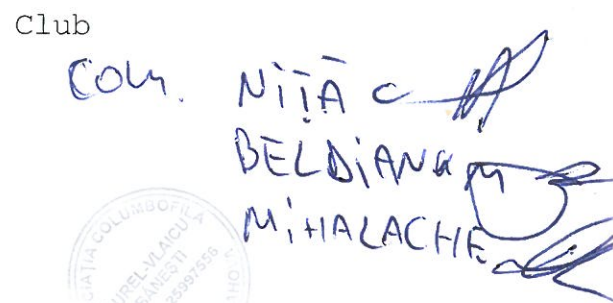 Club
COM. NIȚĂ C
BELDIANU M
MIHALACHE
ASOCIAȚIA COLUMBOFILA
AUREL-VLAICU
25997556